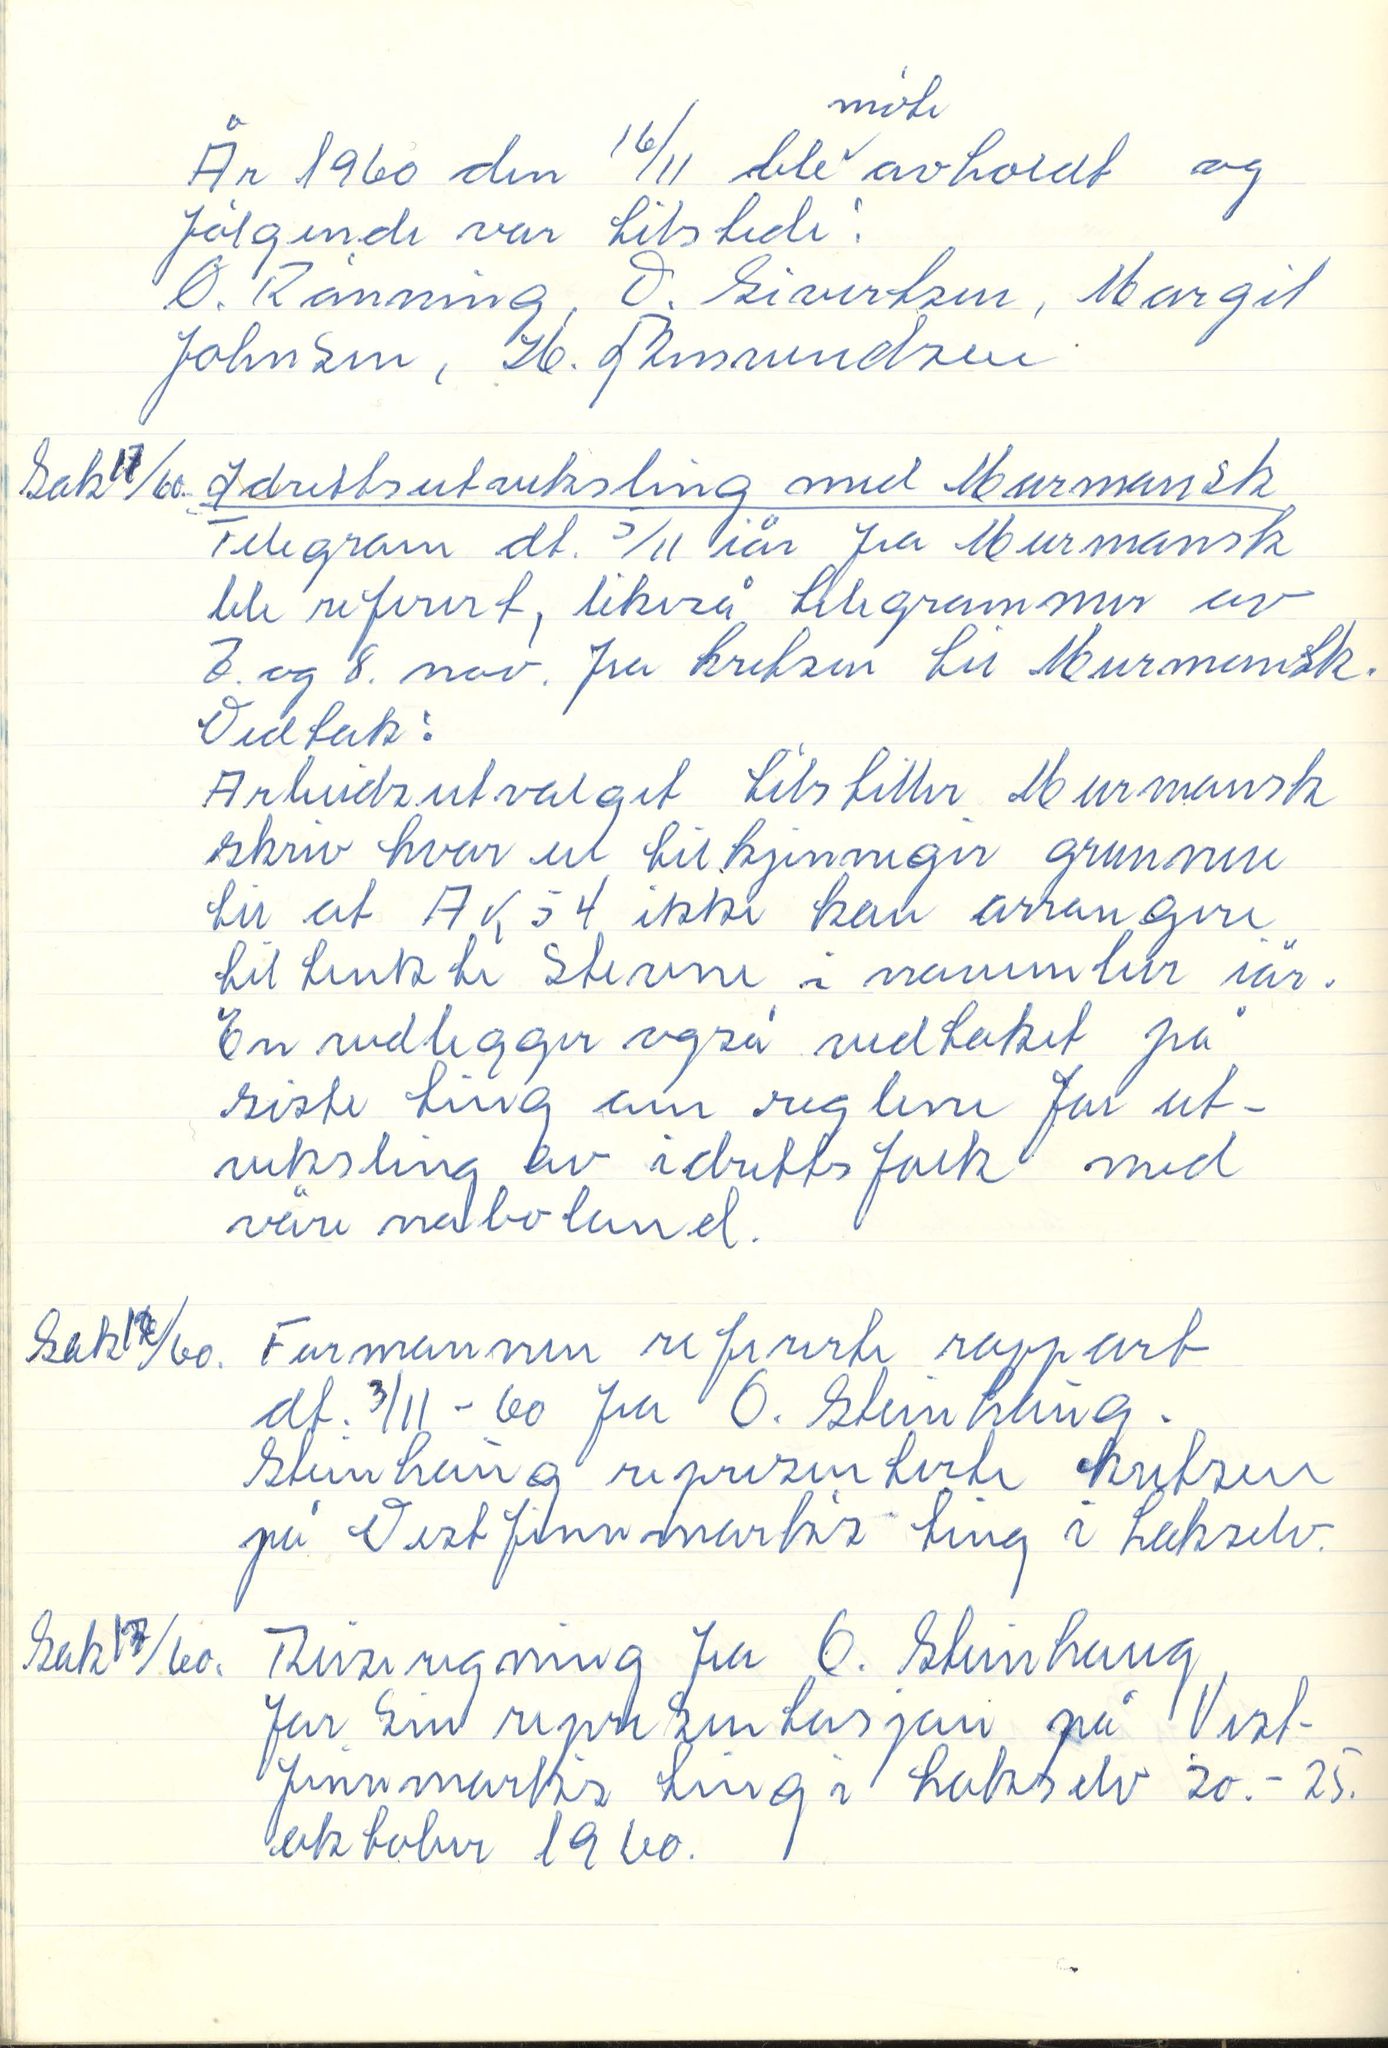 År 1960 den 16/11 ble møte avholdt og
følgende var tilstede:
O. Rønning, O. Sivertsen, Margit
Johnsen, H. Amundsen
Sak /60. Idrettsutveksling med Murmansk
Telegram dt. 5/11 iår fra Murmansk
ble referert, likeså telegrammer av
7. og 8. nov. fra kretsen til Murmansk.
Vedtak:
Arbeidsutvalget tilstiller Murmansk
skriv hvor en tilkjennegir grunnene
til at AK54 ikke kan arrangere
tiltenkte stevne i november iår.
En vedlegger også vedtaket på
siste ting om reglene for ut-
veksling av idrettsfolk med
våre naboland.
Sak /60. Formannen refererte rapport
dt. 3/11-60 fra O. Steinhaug.
Steinhaug representerte kretsen
på Vestfinnmarks ting i Lakselv.
Sak /60. Reiseregning fra O. Steinhaug
for sin representasjon på Vest-
finnmarks ting i Lakselv 20.-25.
oktober 1960.